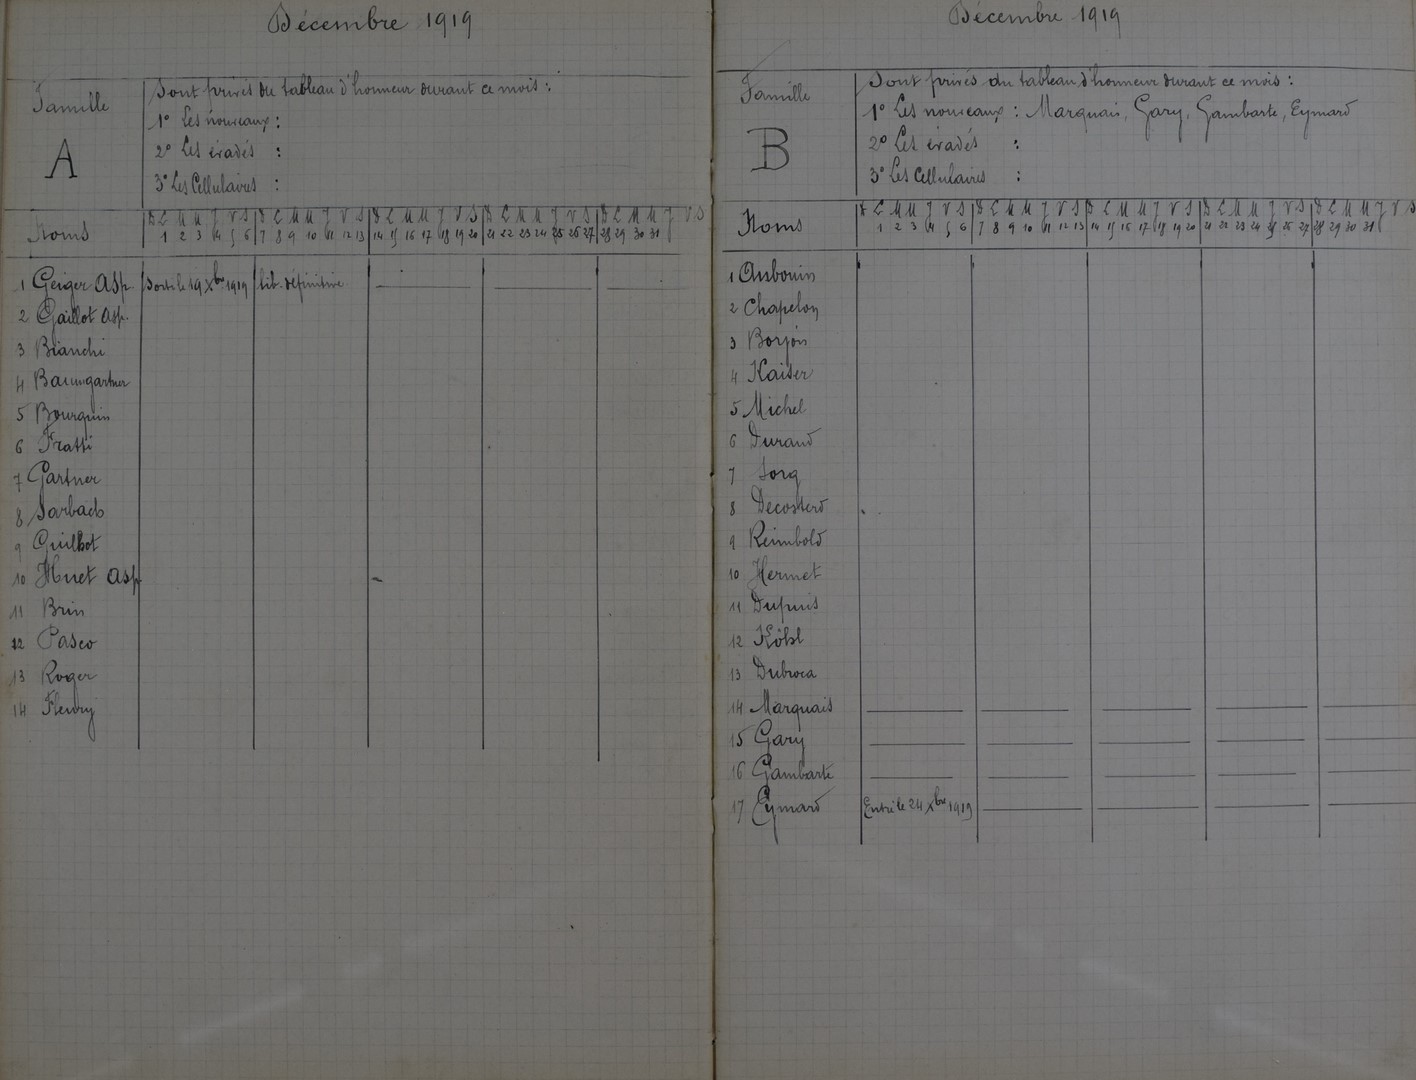 Décembre 1919
Famille
A
Sont privés du tableau d'honneur durant ce mois :
1° Les nouveaux :
2° Les évadés :
3° Les Cellulaires :
Noms
D L M M J V S D L M M J V S D L M M J V S D L M M J V S D L M M J V S
1 2 3 4 5 6 7 8 9 10 11 12 13 14 15 16 17 18 19 20 21 22 23 24 25 26 27 28 29 30 31
1 Geiger Asp. Sorti le 19 Xbre 1919 lib. définitive
2 Gaillot Asp.
3 Bianchi
4 Baumgartner
5 Bourquin
6 Fratti
7 Gartner
8 Sarbach
9 Guilbot
10 Huet Asp
11 Brin
12 Pasco
13 Roger
14 Fleury
Décembre 1919
Famille
B
Sont privés du tableau d'honneur durant ce mois :
1° Les nouveaux : Marquais, Gary, Gambarte, Eymard
2° Les évadés :
3° Les Cellulaires :
Noms
D L M M J V S D L M M J V S D L M M J V S D L M M J V S D L M M J V S
1 2 3 4 5 6 7 8 9 10 11 12 13 14 15 16 17 18 19 20 21 22 23 24 25 26 27 28 29 30 31
1 Aubouin
2 Chapelon
3 Borjon
4 Kaiser
5 Michel
6 Durand
7 Sorg
8 Decosterd
9 Reimbold
10 Hermet
11 Dupuis
12 Kölsl
13 Dubroca
14 Marquais
15 Gary
16 Gambarte
17 Eymard Entré le 24 Xbre 1919